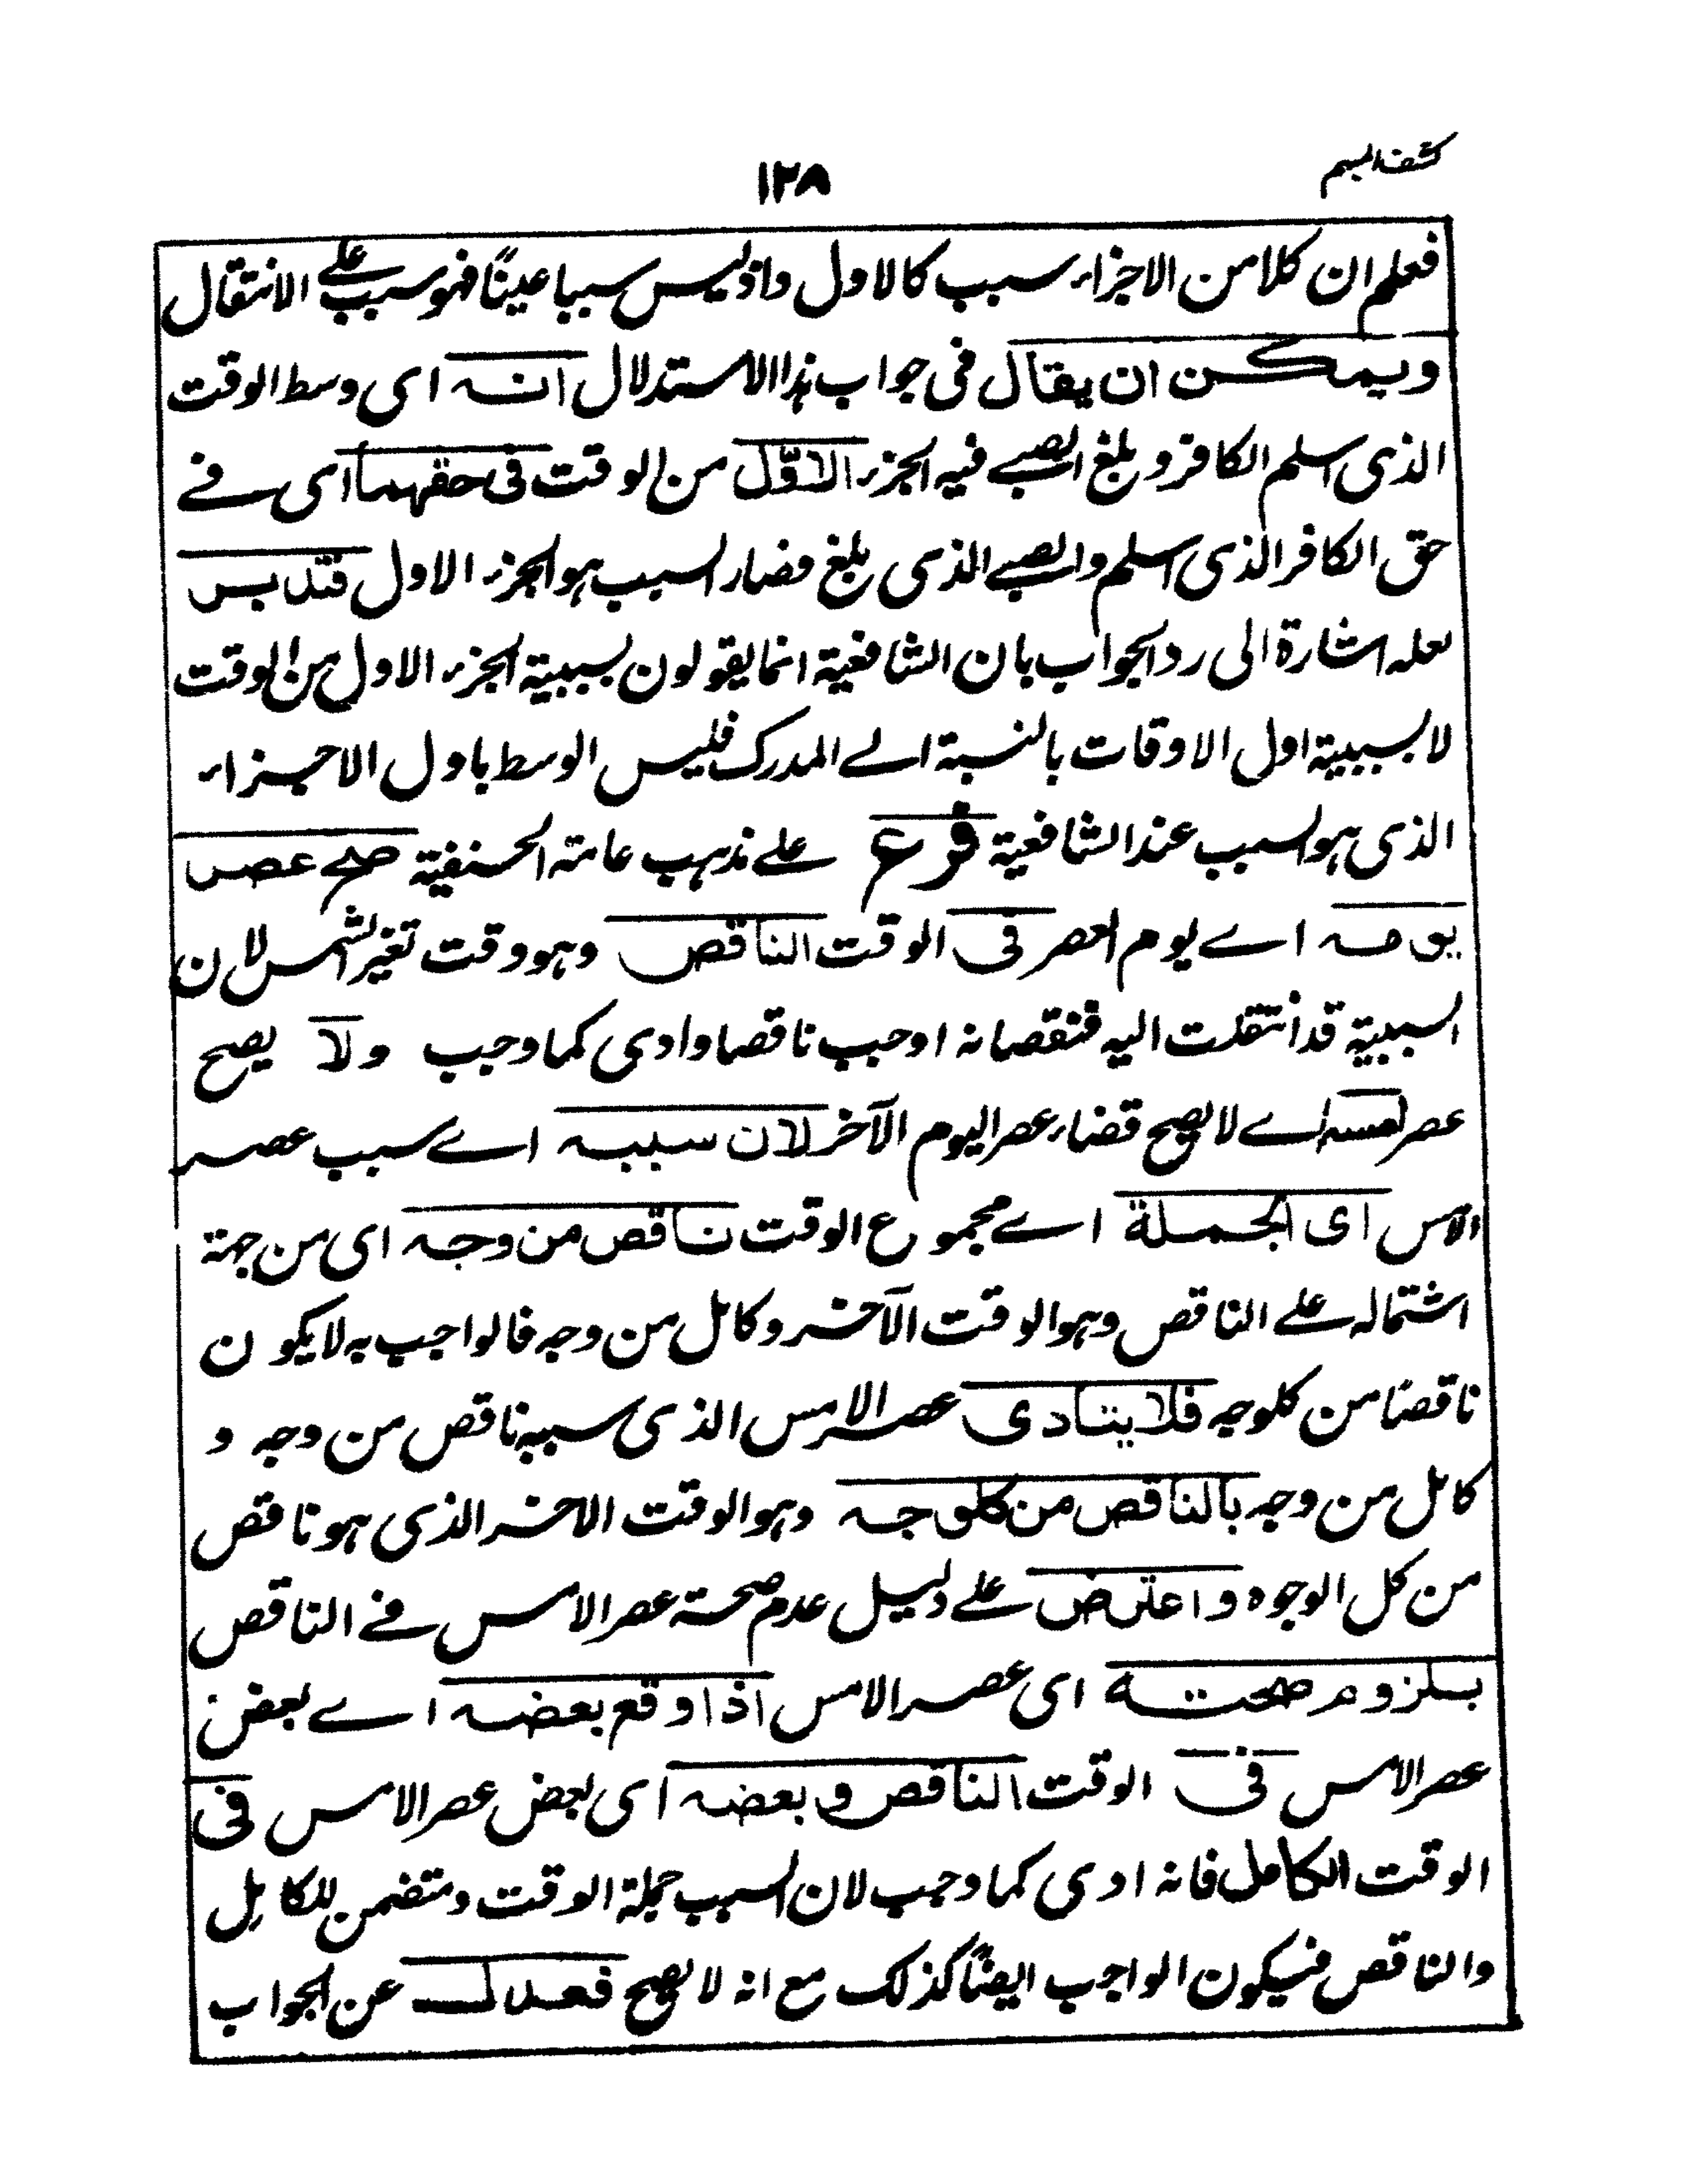 كشف المبهم
١٢٨
فعلم ان كلا من الاجزاء سبب كالاول واذ ليس سببا عينًا فهو سبب على الانتقال
ويمكن ان يقال فى جواب هذا الاستدلال انه اى وسط الوقت
الذى اسلم الكافر و بلغ الصبے فيه الجزء الاوّل من الوقت فى حقهما اى فے
حق الكافر الذى اسلم والصبے الذى بلغ فصار السبب هو الجزء الاول فتدبر
لعله اشارة الى رد الجواب بان الشافعية انما يقولون بسببية الجزء الاول من الوقت
لا بسببية اول الاوقات بالنسبة الے المدرك فليس الوسط باول الاجزاء
الذى هو السبب عند الشافعية فرع علے مذهب عامة الحنفية صح عصر
يومه اے يوم العصر فى الوقت الناقص وهو وقت تغير الشمس لان
السببية قد انتقلت اليه فنقصانه اوجب ناقصا وادى كما وجب ولا يصح
عصر امسه اے لا يصح قضاء عصر اليوم الآخر لان سببه اے سبب عصر
الامس اى الجملة اے مجموع الوقت ناقص من وجه اى من جهة
اشتماله علے الناقص وهو الوقت الآخر و كامل من وجه فالواجب به لا يكون
ناقصًا من كلوجه فلا يتادى عصر الامس الذى سببه ناقص من وجه و
كامل من وجه بالناقص من كلوجه وهو الوقت الاخر الذى هو ناقص
من كل الوجوه واعترض علے دليل عدم صحة عصر الامس فے الناقص
بلزوم صحته اى عصر الامس اذا وقع بعضه اے بعض
عصر الامس فى الوقت الناقص و بعضه اى بعض عصر الامس فى
الوقت الكامل فانه ادى كما وجب لان السبب جملة الوقت ومتضمن للكامل
والناقص فيكون الواجب ايضًا كذلك مع انه لا يصح فعدل عن الجواب